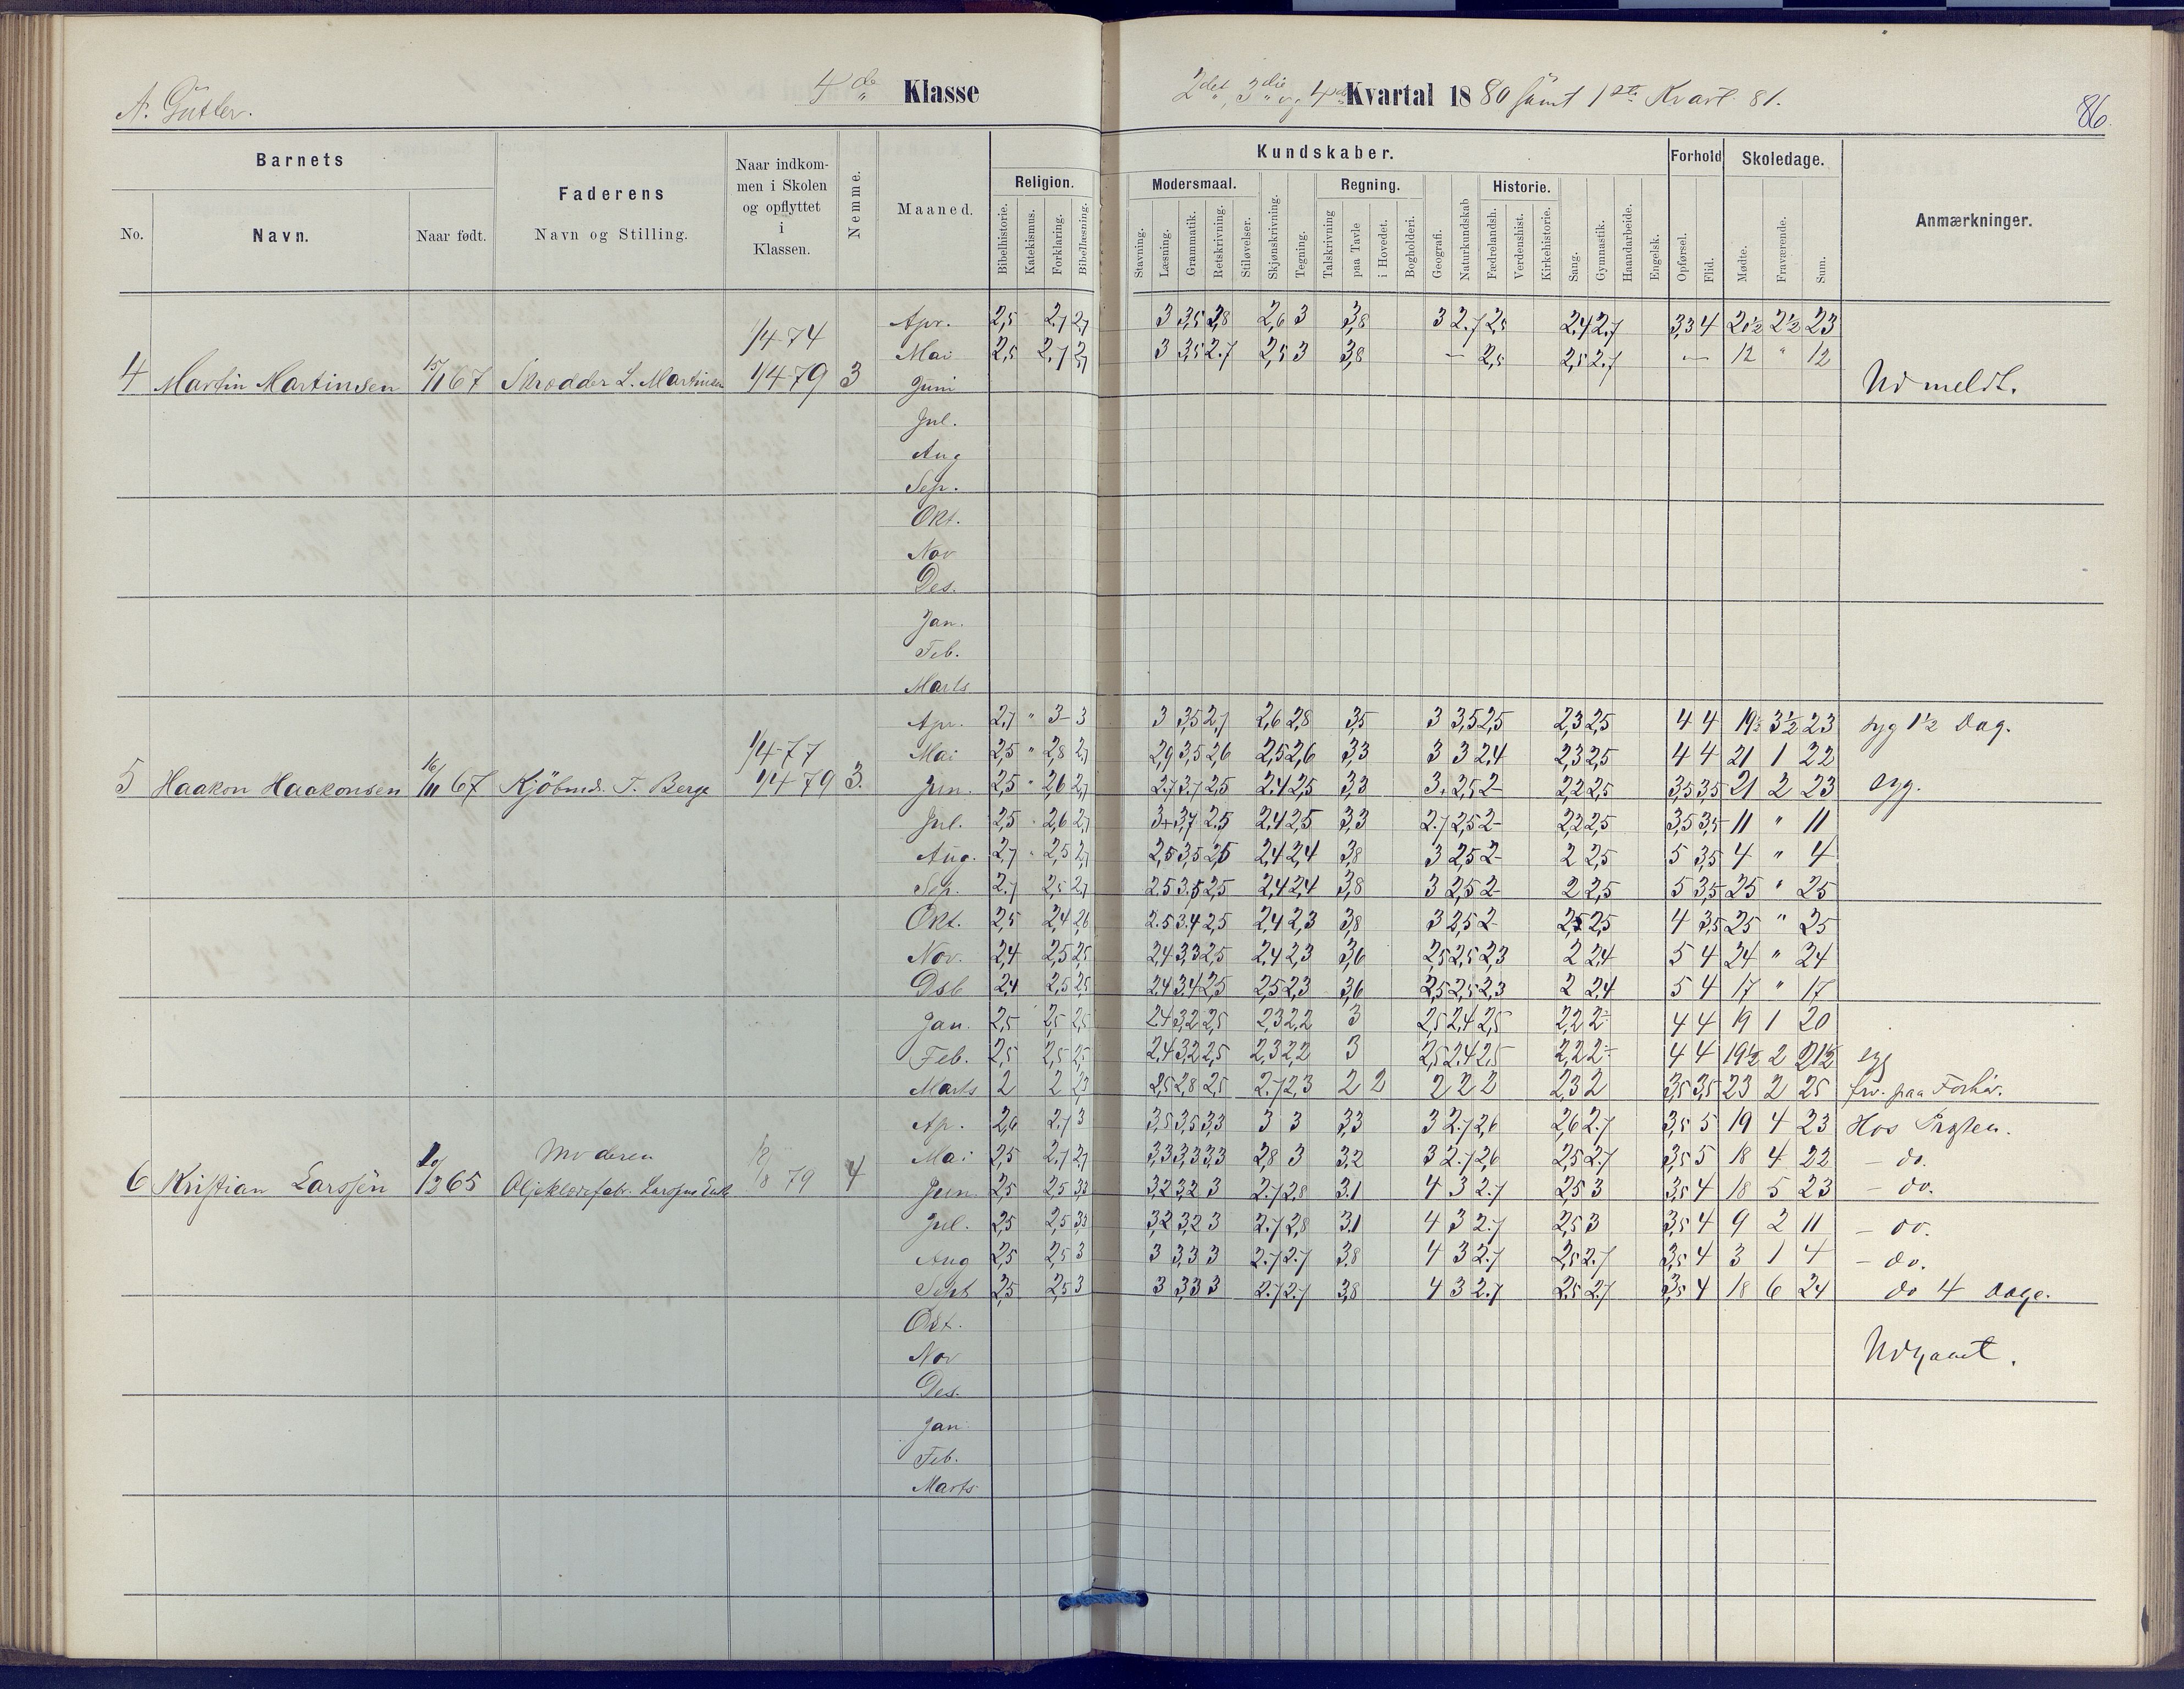 A. Gütler.
4de Klasse
2det, 3die og 4de Kvartal 1880 samt 1ste Kvart. 81.
86.
Barnets
Faderens
Navn og Stilling.
Naar indkom-
men i Skolen
og opflyttet
i
Klassen.
Nemme.
Maaned.
Kundskaber.
Forhold
Skoledage.
Anmærkninger.
No.
Navn.
Naar født.
Religion.
Modersmaal.
Regning.
Historie.
Bibelhistorie.
Katekismus.
Forklaring.
Bibellæsning.
Stavning.
Læsning.
Grammatik.
Retskrivning.
Stiløvelser.
Skjønskrivning.
Tegning.
Talskrivning
paa Tavle
i Hovedet.
Bogholderi.
Geografi.
Naturkundskab
Fædrelandsh.
Verdenshist.
Kirkehistorie.
Sang.
Gymnastik.
Haandarbeide.
Engelsk.
Opførsel.
Flid.
Mødte.
Fraværende.
Sum.
1/4 74 Apr. 2,5 2.7 2,7 3 3,5 2,8 2,6 3 3,8 3 2.7 2,5 2.4 2.7 3,3 4 20½ 2½ 23
Mai 2,5 2,7 2,7 3 3,5 2.7 2,5 3 3,8 — 2,5 2,5 2.7 — 12 " 12
4 Martin Martinsen 15/11 67 Skrædder L. Martinsen 1/4 79 3 Juni Udmeldt.
Jul.
Aug
Sep.
Okt.
Nov
Des.
Jan.
Feb.
Marts
Apr. 2,7 " 3- 3 3 3,5 2,7 2,6 2,8 3,5 3 3,5 2,5 2,3 2,5 4 4 19½ 3½ 23 syg 1½ Dag.
1/4 77 Mai 2,5 " 2,8 2,7 2,9 3,5 2,6 2,5 2,6 3,3 3 3 2,4 2,3 2,5 4 4 21 1 22
5 Haakon Haakonsen 16/11 67 Kjöbmd. T. Berge 1/4 79 3. Jun. 2,5 " 2,6 2,7 2.7 3.7 2,5 2.4 2,5 3,3 3+ 2,5 2- 2,2 2,5 3,5 3,5 21 2 23 syg.
Jul. 2,5 " 2,6 2,7 3+ 3,7 2.5 2.4 2,5 3,3 2.7 2,5 2- 2,2 2,5 3,5 3,5 11 " 11
Aug. 2,7 " 2,5 2,7 2,5 3,5 2,5 2,4 2,4 3,8 3 2,5 2- 2 2,5 5 3,5 4 " 4
Sep. 2.7 2,5 2,7 2.5 3.5 2,5 2,4 2,4 3,8 3 2,5 2- 2 2,5 5 3,5 25 " 25
Okt. 2,5 2,4 2,6 2.5 3.4 2,5 2,4 2,3 3,8 3 2,5 2- 2,5 2,5 4 3,5 25 " 25
Nov. 2,4 2,5 2,5 2,4 3,3 2,5 2.4 2,3 3,6 2,5 2,5 2,3 2 2,4 5 4 24 " 24
Dsb 2,4 2,5 2,5 2,4 3.4 2,5 2,5 2,3 3,6 2,5 2,5 2,3 2 2,4 5 4 17 " 17
Jan. 2,5 2,5 2,5 2.4 3,2 2,5 2,3 2,2 3 2,5 2,4 2,5 2,2 2÷ 4 4 19 1 20
Feb. 2,5 2,5 2,5 2,4 3,2 2,5 2,3 2,2 3 2,5 2.4 2,5 2,2 2÷ 4 4 19½ 2 21½ syg
Marts 2 2 2,3 2,5 2,8 2,5 2.7 2,3 2 2 2 2 2 2,3 2 3,5 3,5 23 2 25 frv. paa Forhör.
Ap. 2,6 2.7 3 3,5 3,5 3,3 3 3 3,3 3 2.7 2,6 2,6 2.7 3,5 5 19 4 23 Hos Prgsten.
Moderen 79 Mai 2,5 2.7 2,7 3,3 3,3 3,3 2,8 3 3,2 3 2.7 2,6 2,5 2.7 3,5 5 18 4 22 — do.
6 Kristian Larssen 65 4 Jun. 2,5 2,5 3,3 3,2 3,2 3 2.7 2,8 3.1 4 3 2.7 2,5 3 3,5 4 18 5 23 — do.
Jul. 2,5 2,5 3,3 3,2 3,2 3 2.7 2,8 3.1 4 3 2.7 2,5 3 3,5 4 9 2 11 — do.
Aug 2,5 2,5 3 3 3,3 3 2.7 2.7 3.8 4 3 2.7 2,5 2.7 3,5 4 3 1 4 — do.
Sept 2,5 2,5 3 3 3,3 3 2.7 2.7 3,8 4 3 2.7 2.5 2.7 3,5 4 18 6 24 do 4 Dage.
Okt.
Nov
Des.
Jan.
Feb.
Marts